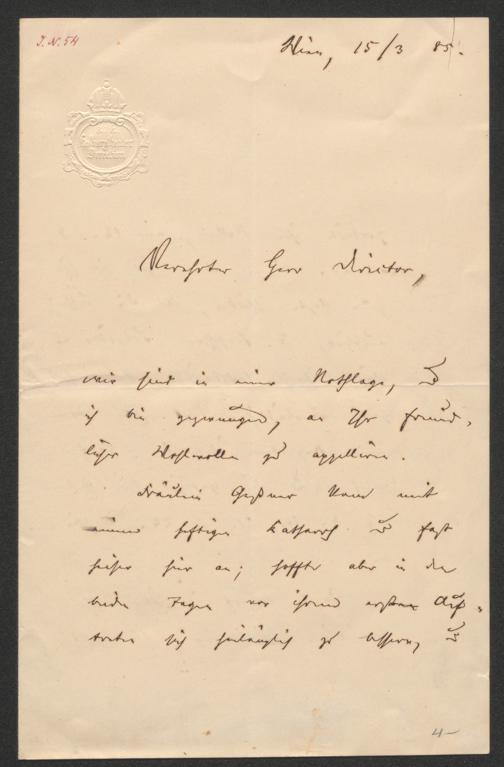 J. N. 54
Wien, 15/3 85.
Verehrter Herr Director,
wir sind in einer Nothlage, u
ich bin gezwungen, an Ihr freund-
liches Wohlwollen zu appelliren.
Fräulein Geßner kam mit
einem heftigen Katharrh u fast
heiser hier an; hoffte aber in den
beiden Tagen vor ihrem ersten Auf-
treten sich hinlänglich zu bessern, u
4-